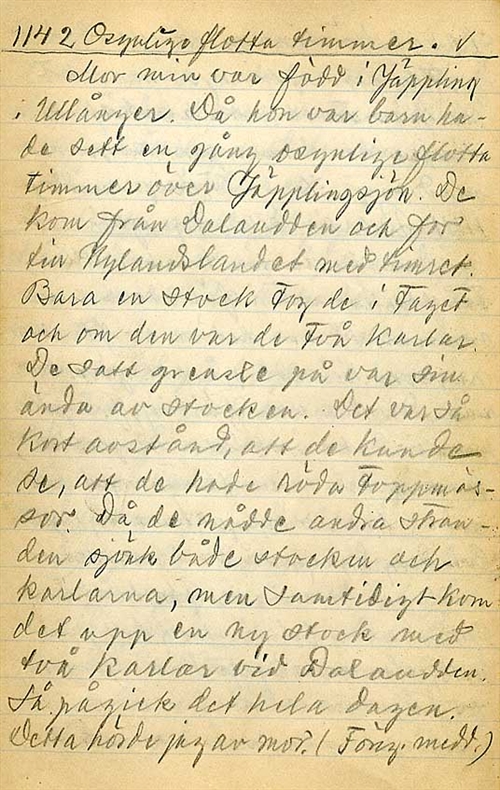 1142 Osynlige flotta timmer. √
Mor min var född i Jäppling
i Ullånger. Då hon var barn ha-
de sett en gång osynlige flotta
timmer över Jäpplingsjön. De
kom från Dalaudden och for
till Nylandslandet med timret.
Bara en stock tog de i taget
och om den var de två karlar.
De satt grensle på var sin
ände av stocken. Det var så
kort avstånd, att de kunde
se, att de hade röda toppmös-
sor. Då de nådde andra stran-
den sjönk både stocken och
karlarna, men samtidigt kom
det upp en ny stock med
två karlar vid Dalaudden.
Så pågick det hela dagen.
Detta hörde jag av mor. (Förg. medd.)